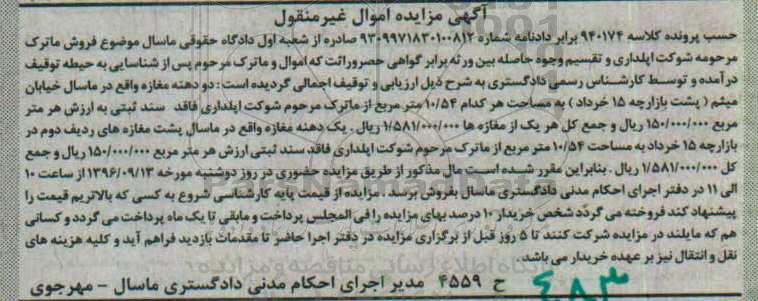 آگهی مزایده اموال غیرمنقول
حسب پرونده کلاسه ۹۴۰۱۷۴ برابر دادنامه شماره ۹۳۰۹۹۷۱۸۳۰۱۰۰۸۱۲ صادره از شعبه اول دادگاه حقوقی ماسال موضوع فروش ماترک
مرحومه شوکت ایلداری و تقسیم وجوه حاصله بین ورثه برابر گواهی حصروراثت که اموال و ماترک مرحوم پس از شناسایی به حیطه توقیف
درآمده و توسط کارشناس رسمی دادگستری به شرح ذیل ارزیابی و توقیف اجمالی گردیده است: دو دهنه مغازه واقع در ماسال خیابان
میثم ( پشت بازارچه ۱۵ خرداد ) به مساحت هر کدام ۱۰/۵۴ متر مربع از ماترک مرحوم شوکت ایلداری فاقد سند ثبتی به ارزش هر متر
مربع ۱۵۰/۰۰۰/۰۰۰ ریال و جمع کل هر یک از مغازه ها ۱/۵۸۱/۰۰۰/۰۰۰ ریال . یک دهنه مغازه واقع در ماسال پشت مغازه های ردیف دوم در
بازارچه ۱۵ خرداد به مساحت ۱۰/۵۴ متر مربع از ماترک مرحوم شوکت ایلداری فاقد سند ثبتی ارزش هر متر مربع ۱۵۰/۰۰۰/۰۰۰ ریال و جمع
کل ۱/۵۸۱/۰۰۰/۰۰۰ ریال . بنابراین مقرر شده است مال مذکور از طریق مزایده حضوری در روز دوشنبه مورخه ۱۳۹۶/۰۹/۱۳ از ساعت ۱۰
الی ۱۱ در دفتر اجرای احکام مدنی دادگستری ماسال بفروش برسد . مزایده از قیمت پایه کارشناسی شروع به کسی که بالاتریم قیمت را
پیشنهاد کند فروخته می گردد شخص خریدار ۱۰ درصد بهای مزایده را فی المجلس پرداخت و مابقی تا یک ماه پرداخت می گردد و کسانی
هم که مایلند در مزایده شرکت کنند تا ۵ روز قبل از برگزاری مزایده در دفتر اجرا حاضر تا مقدمات بازدید فراهم آید و کلیه هزینه های
نقل و انتقال نیز بر عهده خریدار می باشد .
ح ۴۵۵۹ مدیر اجرای احکام مدنی دادگستری ماسال – مهرجوی